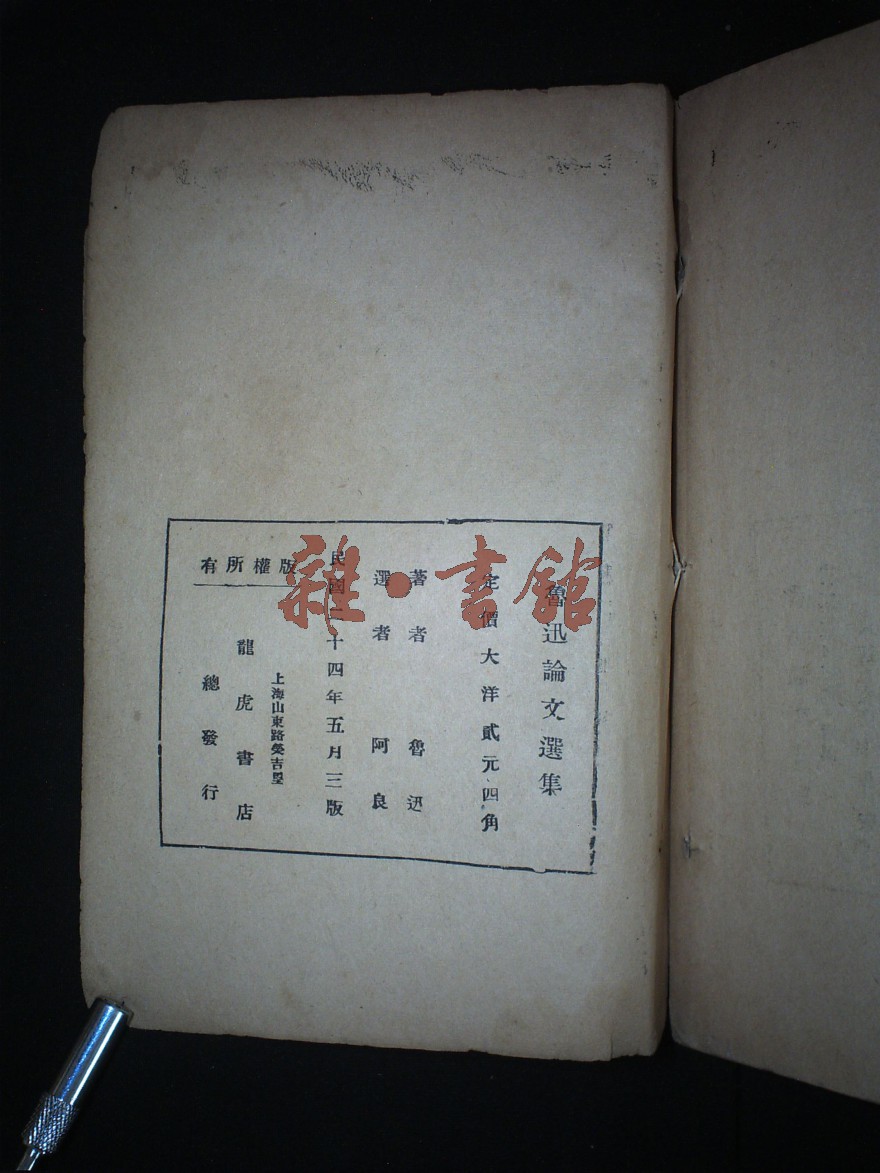 魯迅論文選集
定價大洋貳元四角
著者 魯迅
選者 阿良
民國二十四年五月三版
上海山東路榮吉里
龍虎書店
總發行
版權所有
雜·書館